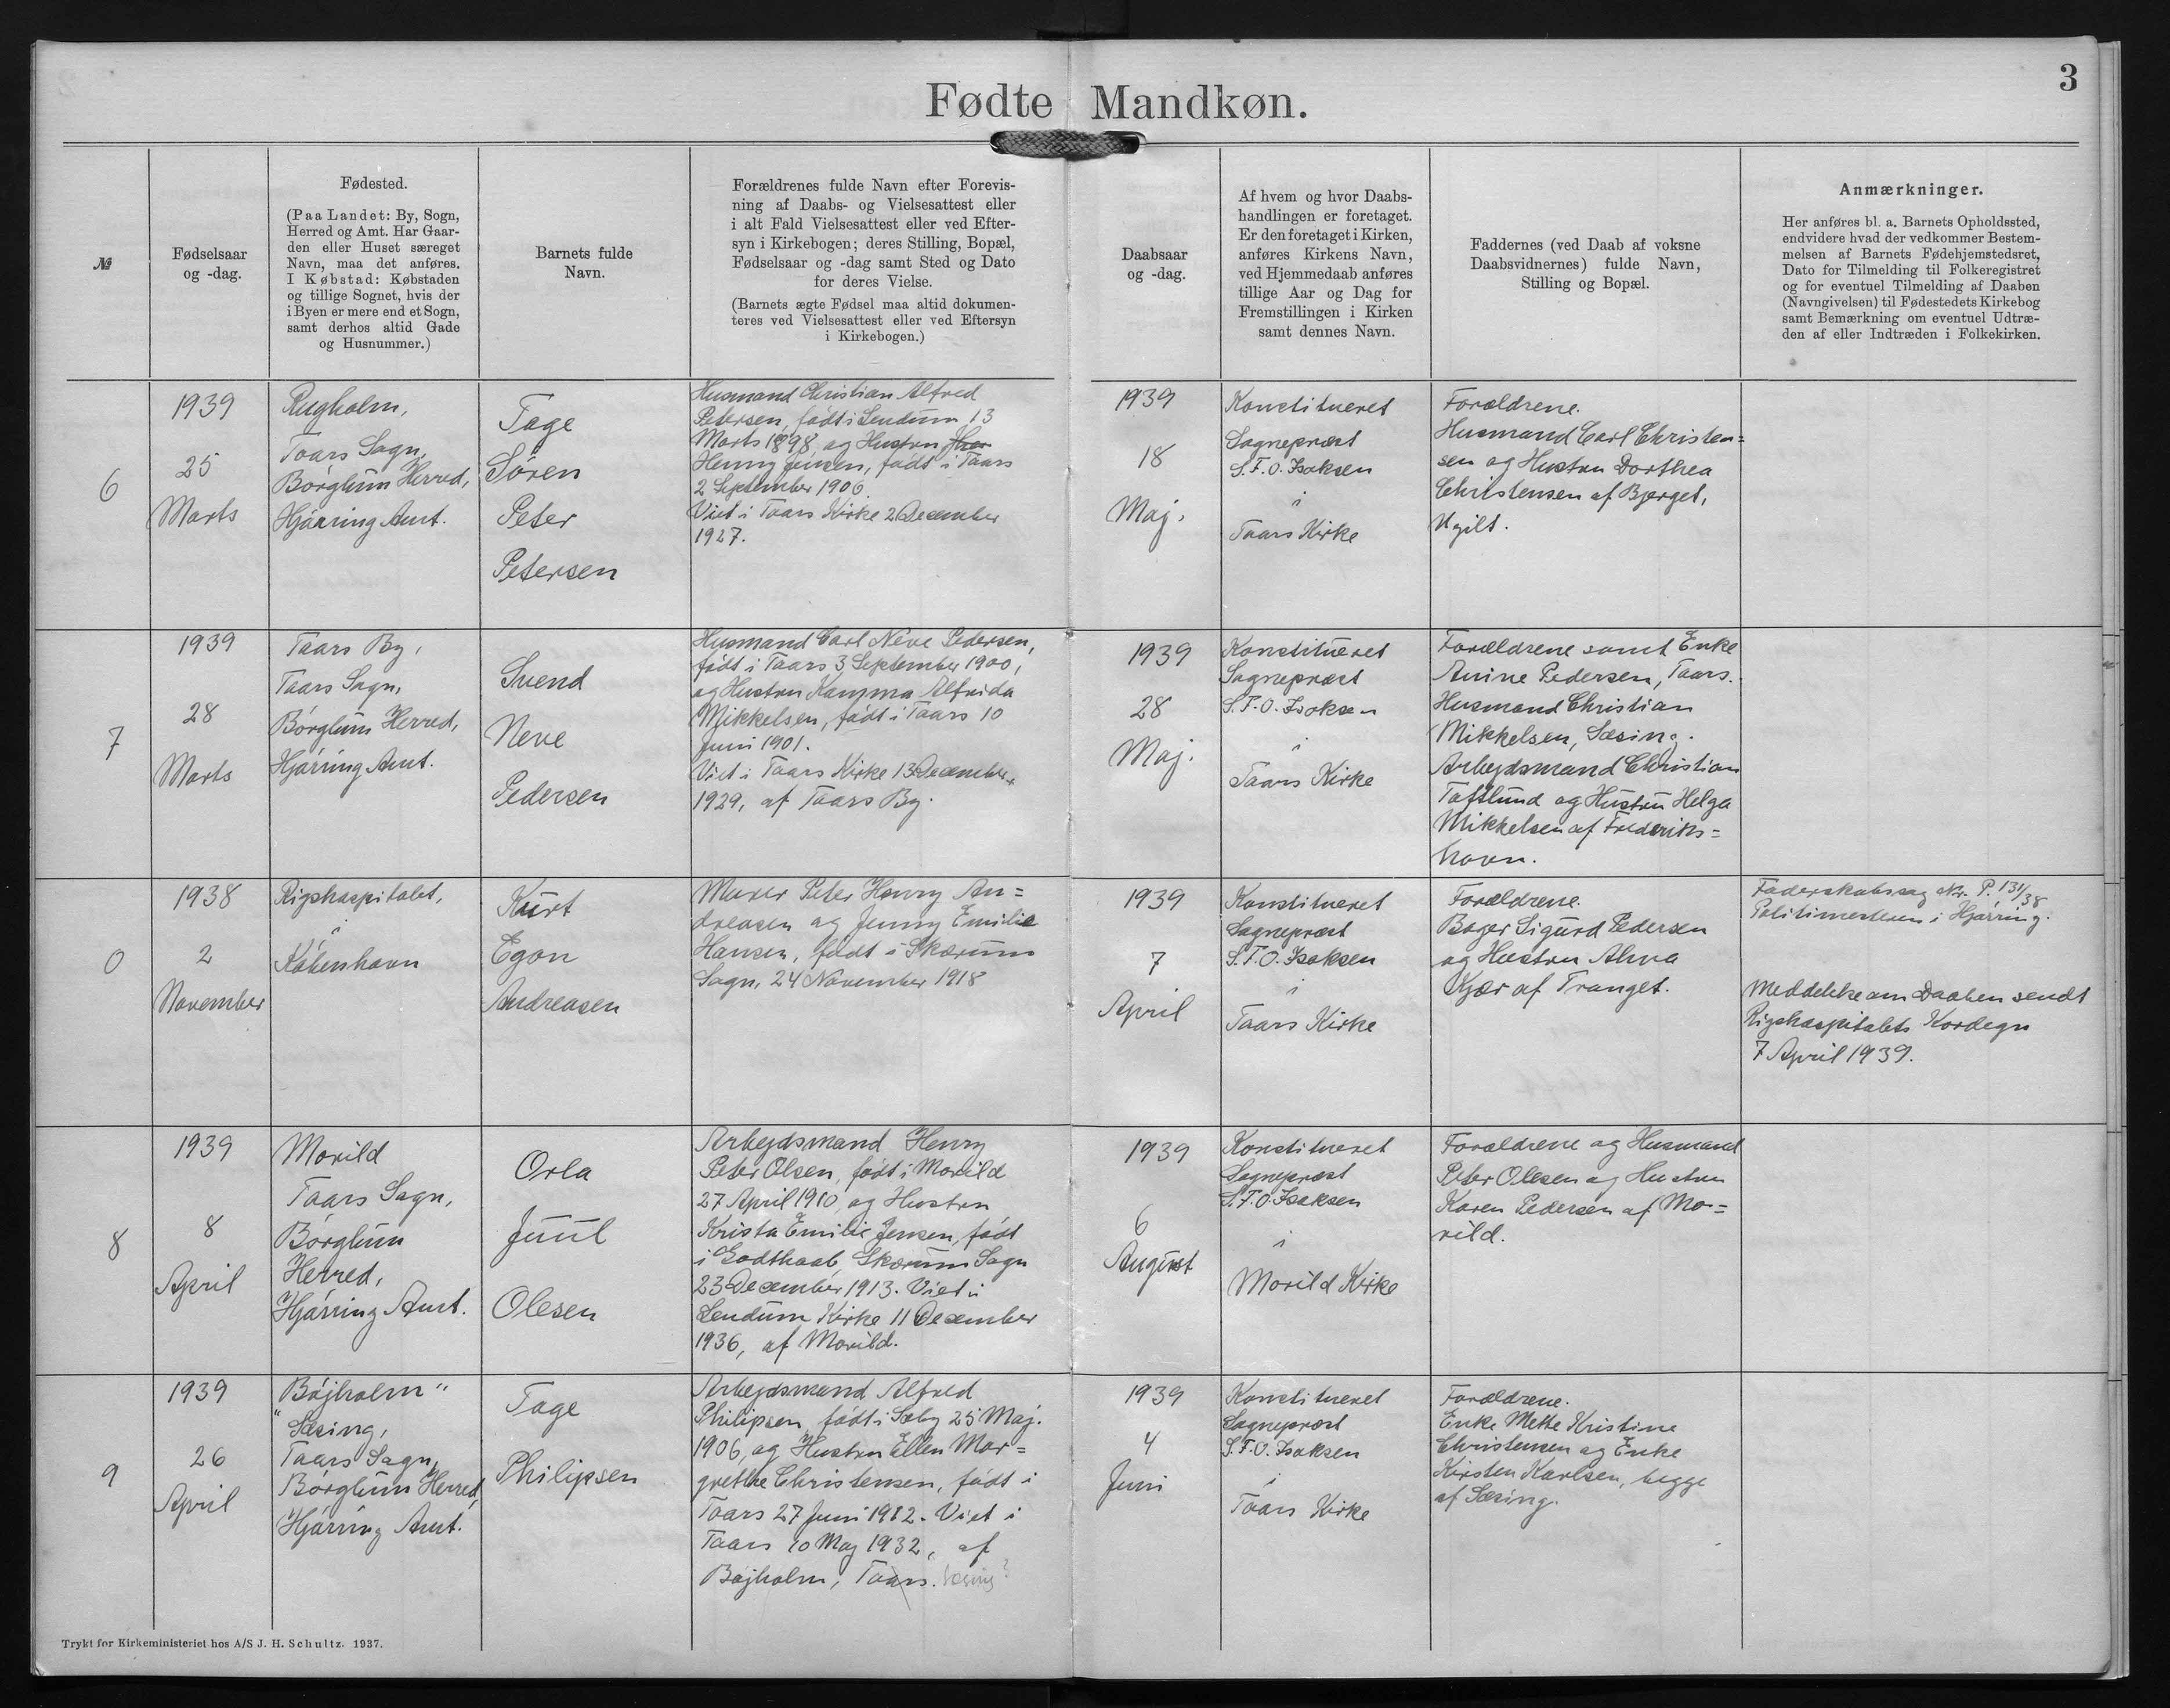 3
Fødte Mandkøn.
№
Fødselsaar
og -dag.
Fødested.
(Paa Landet: By, Sogn,
Herred og Amt. Har Gaar-
den eller Huset særeget
Navn, maa det anføres.
I Købstad: Købstaden
og tillige Sognet, hvis der
i Byen er mere end et Sogn,
samt derhos altid Gade
og Husnummer.)
Barnets fulde
Navn.
Forældrenes fulde Navn efter Forevis-
ning af Daabs- og Vielsesattest eller
i alt Fald Vielsesattest eller ved Efter-
syn i Kirkebogen; deres Stilling, Bopæl,
Fødselsaar og -dag samt Sted og Dato
for deres Vielse.
(Barnets ægte Fødsel maa altid dokumen-
teres ved Vielsesattest eller ved Eftersyn
i Kirkebogen.)
Daabsaar
og -dag.
Af hvem og hvor Daabs-
handlingen er foretaget.
Er den foretaget i Kirken,
anføres Kirkens Navn,
ved Hjemmedaab anføres
tillige Aar og Dag for
Fremstillingen i Kirken
samt dennes Navn.
Faddernes (ved Daab af voksne
Daabsvidnernes) fulde Navn,
Stilling og Bopæl.
Anmærkninger.
Her anføres bl. a. Barnets Opholdssted,
endvidere hvad der vedkommer Bestem-
melsen af Barnets Fødehjemstedsret,
Dato for Tilmelding til Folkeregistret
og for eventuel Tilmelding af Daaben
(Navngivelsen) til Fødestedets Kirkebog
samt Bemærkning om eventuel Udtræ-
den af eller Indtræden i Folkekirken.
6
1939
25
Marts
Rugholm,
Taars Sogn,
Börglum Herred,
Hjörring Amt.
Tage
Sören
Peter
Petersen
Husmand Christian Alfred
Petersen, födt i Lendum 13
Marts 1898, og Hustru
Henny Jensen, födt i Taars
2 September 1906.
Viet i Taars Kirke 2 December
1927.
1939
18
Maj.
Konstitueret
Sognepræst
S.F.O. Isaksen
i
Taars Kirke
Forældrene.
Husmand Carl Christen=
sen og Hustru Dorthea
Christensen af Bjerget,
Ugilt.
7
1939
28
Marts
Taars By,
Taars Sogn,
Börglum Herred,
Hjörring Amt.
Svend
Neve
Pedersen
Husmand Carl Neve Pedersen,
födt i Taars 3 September 1900,
og Hustru Kamma Alfrida
Mikkelsen, födt i Taars 10
Juni 1901.
Viet i Taars Kirke 13 December
1929, af Taars By.
1939
28
Maj.
Konstitueret
Sognepræst
S.F.O. Isaksen
i
Taars Kirke
Forældrene samt Enke
Anine Pedersen, Taars.
Husmand Christian
Mikkelsen, Sæsing.
Arbejdsmand Christian
Toftlund og Hustru Helga
Mikkelsen af Frederiks=
havn.
0
1938
2
November
Rigshospitalet,
i
Köbenhavn
Kurt
Egon
Andreasen
Murer Peter Henry An=
dreasen og Jenny Emilie
Hansen, födt i Skærum
Sogn, 24 November 1918
1939
7
April
Konstitueret
Sognepræst
S.F.O. Isaksen
i
Taars Kirke
Forældrene.
Bager Sigurd Pedersen
og Hustru Alma
Kjær af Tranget.
Faderskabssag Nr. P. 131/38
Politimesteren i Hjörring.
Meddelelse om Daaben sendt
Rigshospitalets Kordegn
7 April 1939.
8
1939
8
April
Morild
Taars Sogn,
Börglum
Herred,
Hjörring Amt.
Orla
Juul
Olesen
Arbejdsmand Henry
Peter Olsen, födt i Morild
27 April 1910, og Hustru
Krista Emilie Jensen, födt
i Godthaab, Skærum Sogn
23 December 1913. Viet i
Lendum Kirke 11 December
1936, af Morild.
1939
6
August
Konstitueret
Sognepræst
S.F.O. Isaksen
i
Morild Kirke
Forældrene og Husmand
Peter Olesen og Hustru
Karen Pedersen af Mo=
rild.
9
1939
26
April
Böjholm"
"Sæsing,
Taars Sogn,
Börglum Herred,
Hjörring Amt.
Tage
Philipsen
Arbejdsmand Alfred
Philipsen, födt i Sæby 25 Maj.
1906, og Hustru Ellen Mar=
grethe Christensen, födt i
Taars 27 Juni 1912. Viet i
Taars 10 Maj 1932, af
Böjholm, Taars. Sæsing?
1939
4
Juni
Konstitueret
Sognepræst
S.F.O. Isaksen
i
Taars Kirke
Forældrene.
Enke Mette Kristine
Christensen og Enke
Kirsten Karlsen, begge
af Sæsing.
Trykt for Kirkeministeriet hos A/S J. H. Schultz. 1937.